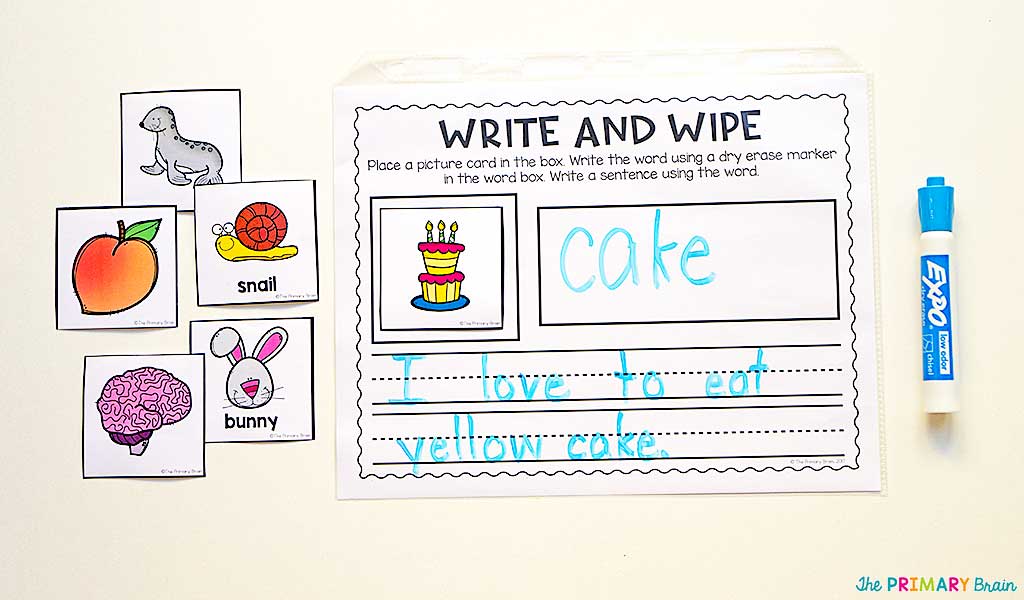 WRITE AND WIPE
Place a picture card in the box. Write the word using a dry erase marker
in the word box. Write a sentence using the word.
cake
I love to eat
yellow cake.
©The Primary Brain
©The Primary Brain, 2017
snail
©The Primary Brain
©The Primary Brain
bunny
©The Primary Brain
©The Primary Brain
EXPO
low odor
chisel
The PRIMARY Brain